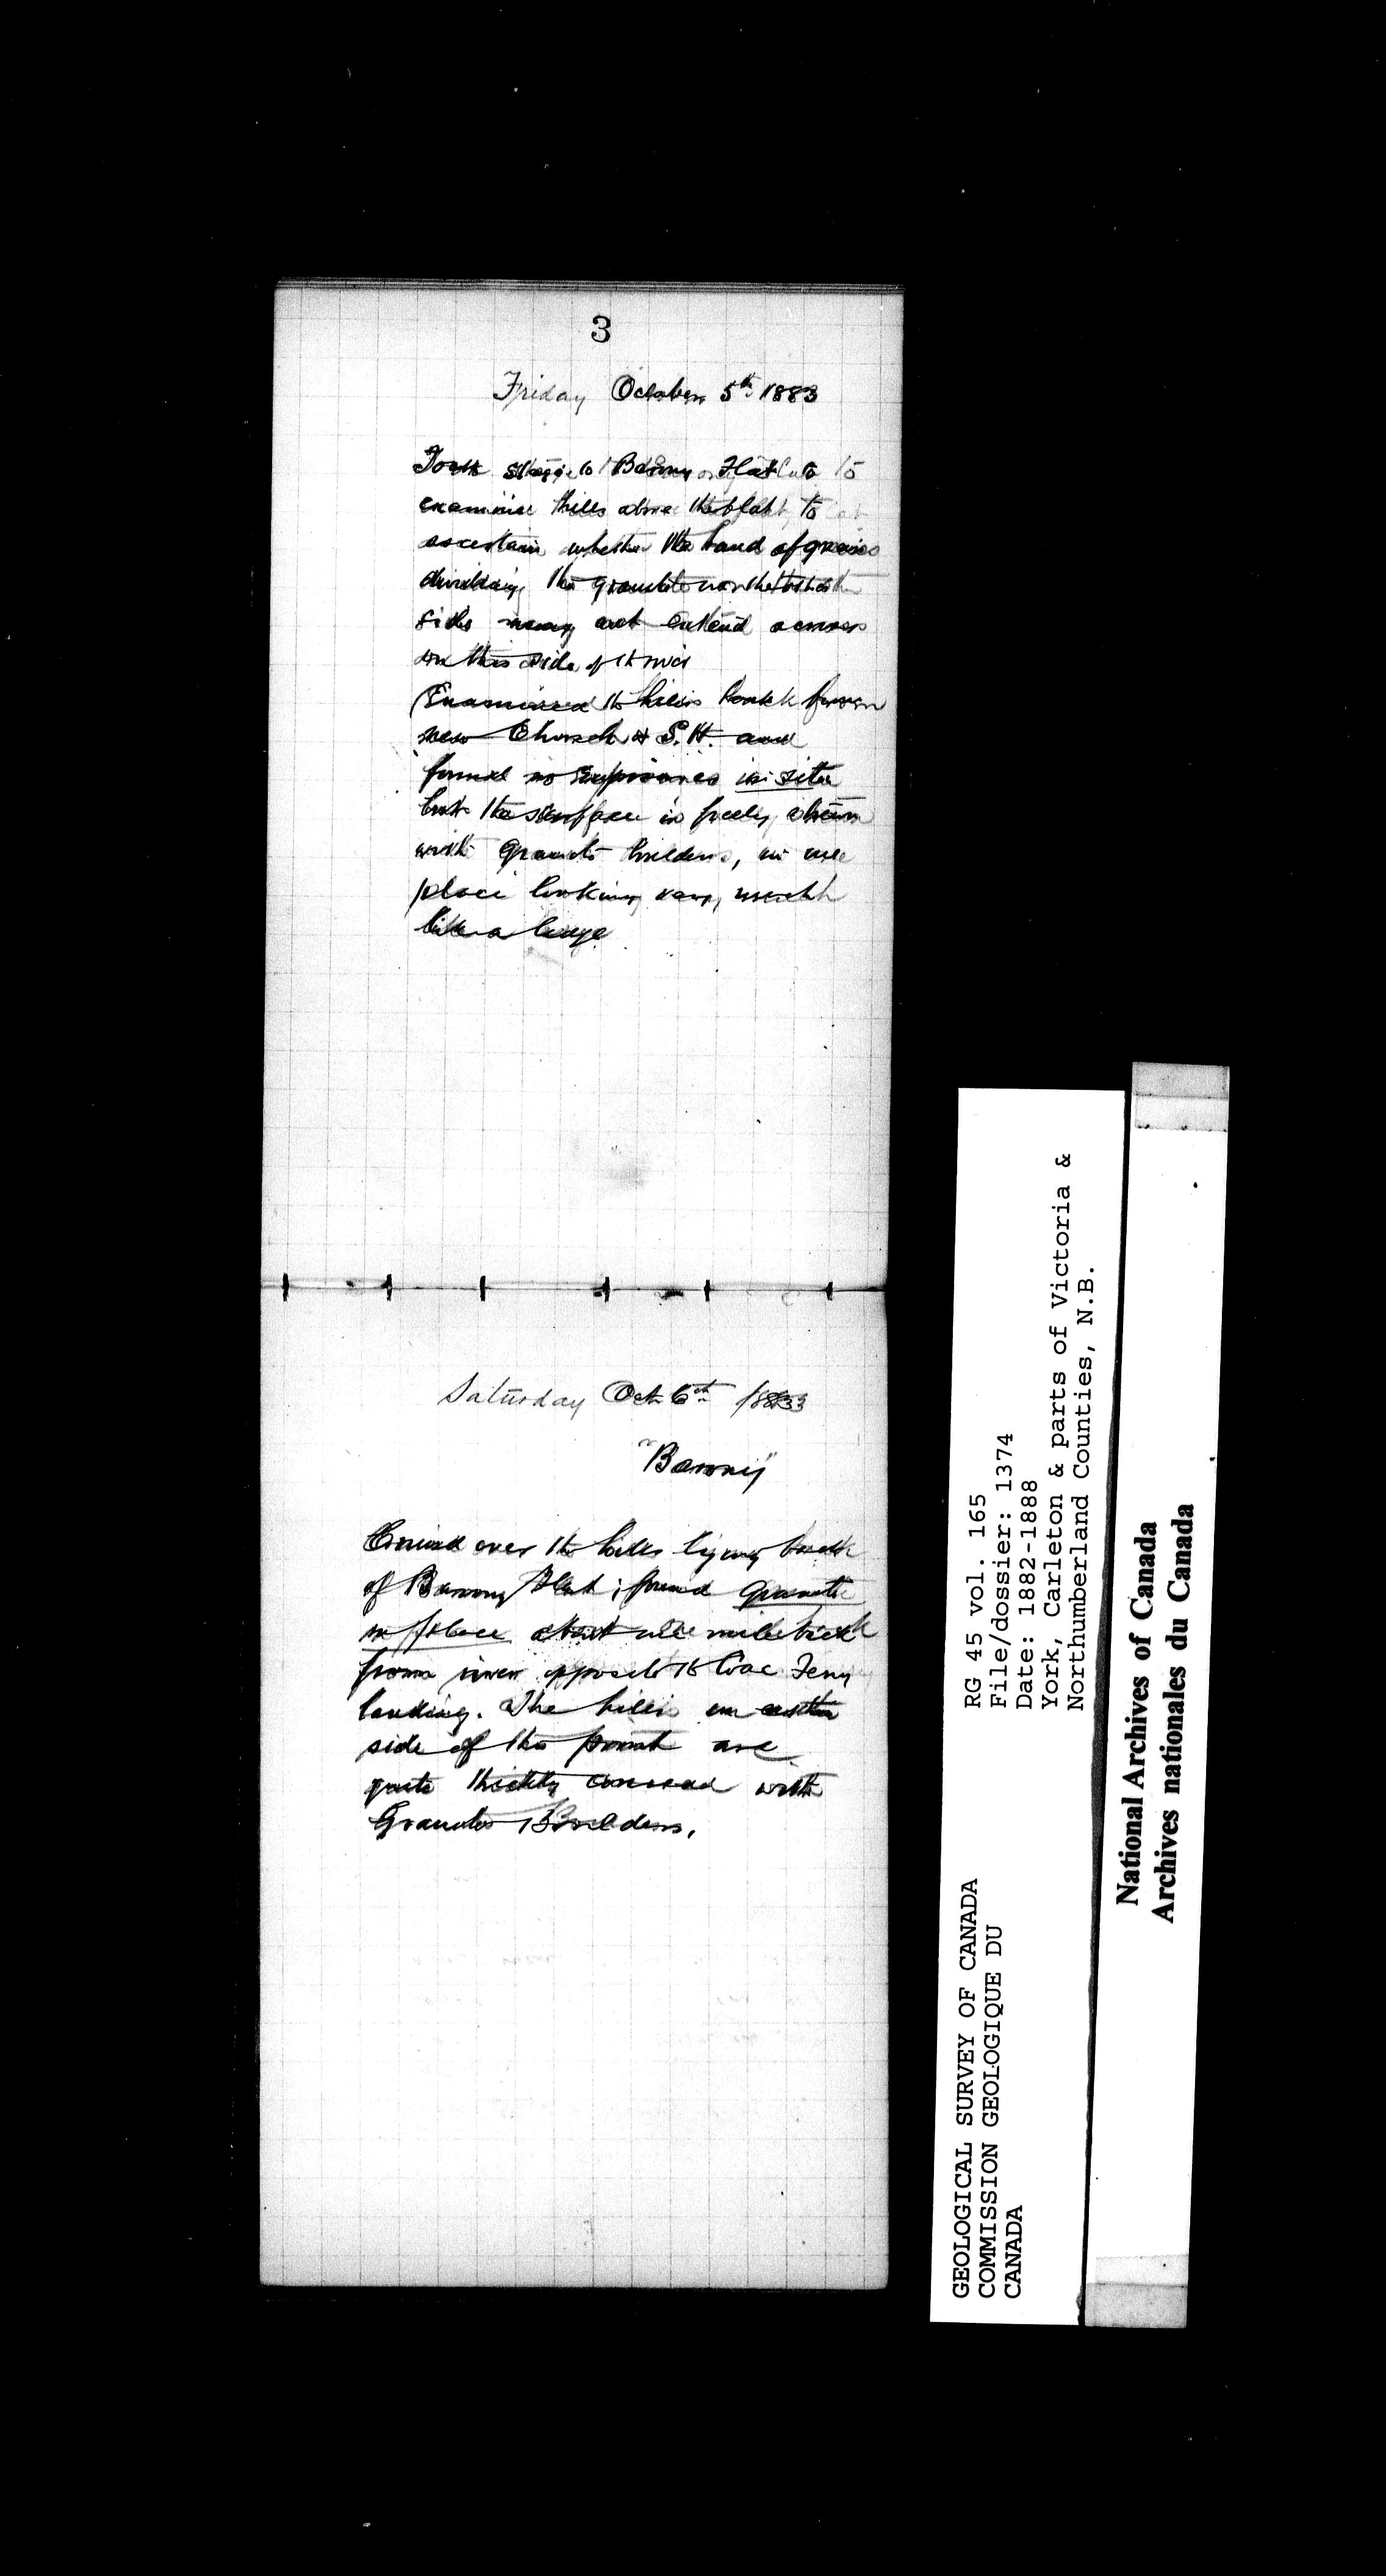 3
Friday October 5th 1883
Took stage to Barony Flat to
examine hills above the flat to
ascertain whether the band of gneiss
dividing the granite on the other
side may not extend across
on this side of the river
Examined the hills back from
new Church & S.H. and
found no exposures in situ
but the surface is freely strewn
with Granite boulders, in one
place looking very much
like a ledge
Saturday Oct 6th 1883
"Barony"
over the hills lying back
of Barony Flat; found granite
in place about one mile back
from river opposite the Ferry
landing. The hills on either
side of this point are
quite thickly covered with
Granite Boulders.
GEOLOGICAL SURVEY OF CANADA
COMMISSION GEOLOGIQUE DU
CANADA
RG 45 vol. 165
File/dossier: 1374
Date: 1882-1888
York, Carleton & parts of Victoria &
Northumberland Counties, N.B.
National Archives of Canada
Archives nationales du Canada